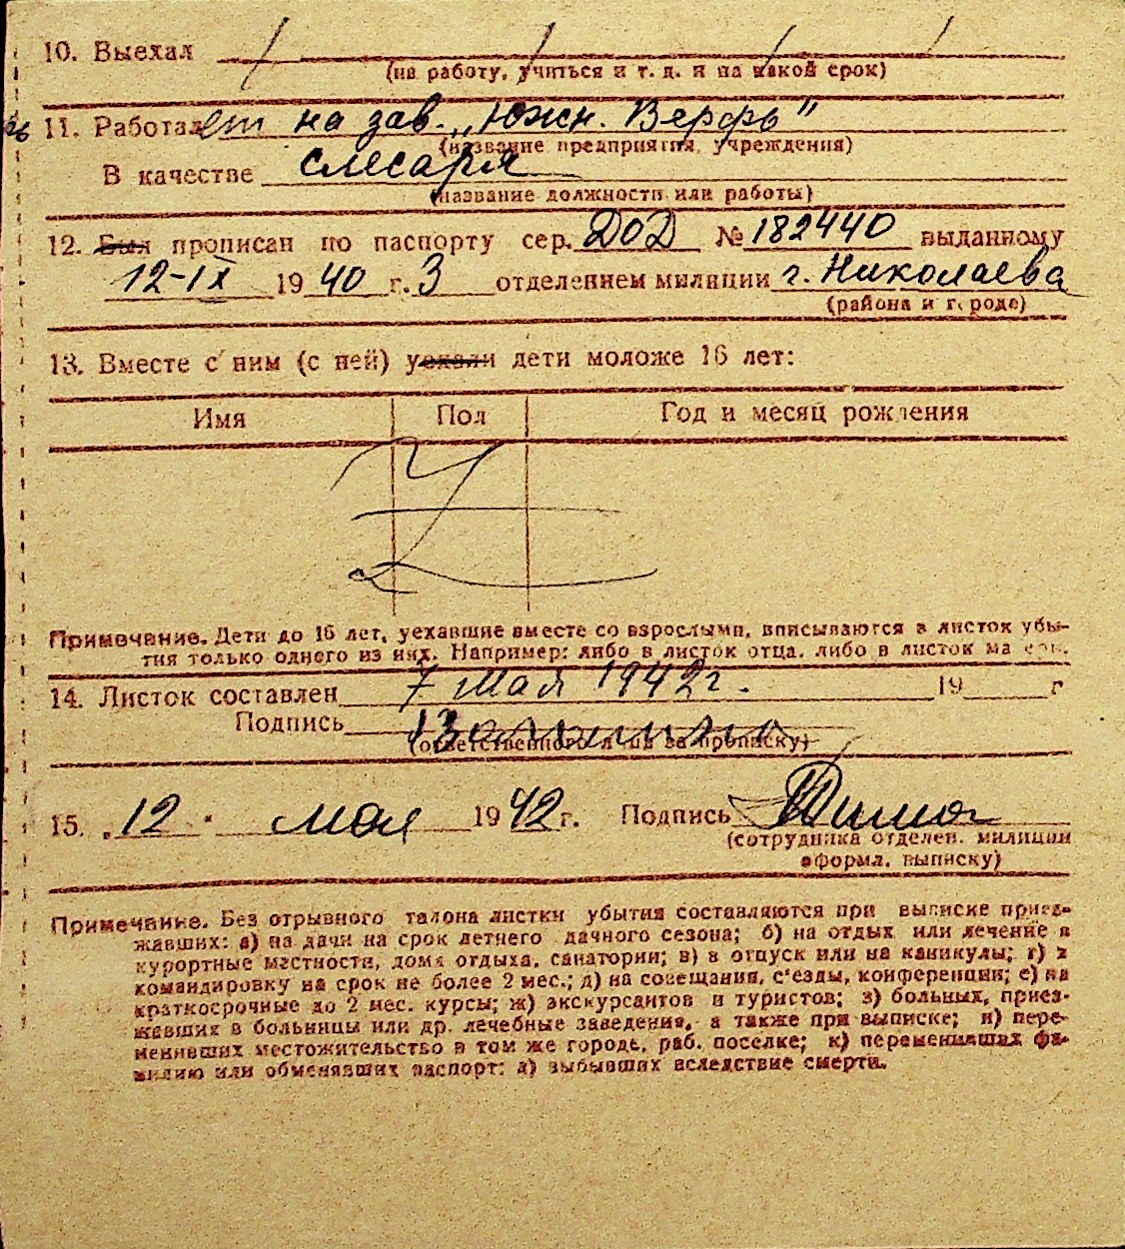 10. Выехал
(на работу, учиться и т. д. и на какой срок)
11. Работает на зав. „Южн. Верфь"
(название предприятия, учреждения)
В качестве слесаря
(название должности или работы)
12. Был прописан по паспорту сер. ДОД № 182440 выданному
12-IX 1940 г. 3 отделением милиции г. Николаева
(района и города)
13. Вместе с ним (с ней) уехали дети моложе 16 лет:
Имя Пол Год и месяц рождения
Примечание. Дети до 16 лет, уехавшие вместе со взрослыми, вписываются в листок убы-
тия только одного из них. Например: либо в листок отца, либо в листок матери.
14. Листок составлен 7 мая 1942 г. 19 г
Подпись
(ответственного лица за прописку)
15. „12 " мая 1942 г. Подпись
(сотрудника отделен. милиции
оформл. выписку)
Примечание. Без отрывного талона листки убытия составляются при выписке приез-
жавших: а) на дачи на срок летнего дачного сезона; б) на отдых или лечение в
курортные местности, дома отдыха, санатории; в) в отпуск или на каникулы; г) в
командировку на срок не более 2 мес.; д) на совещания, с'езды, конференции; е) на
краткосрочные до 2 мес. курсы; ж) экскурсантов и туристов; з) больных, приез-
жавших в больницы или др. лечебные заведения, а также при выписке; и) пере-
менивших местожительство в том же городе, раб. поселке; к) переменивших фа-
милию или обменявших паспорт; л) выбывших вследствие смерти.